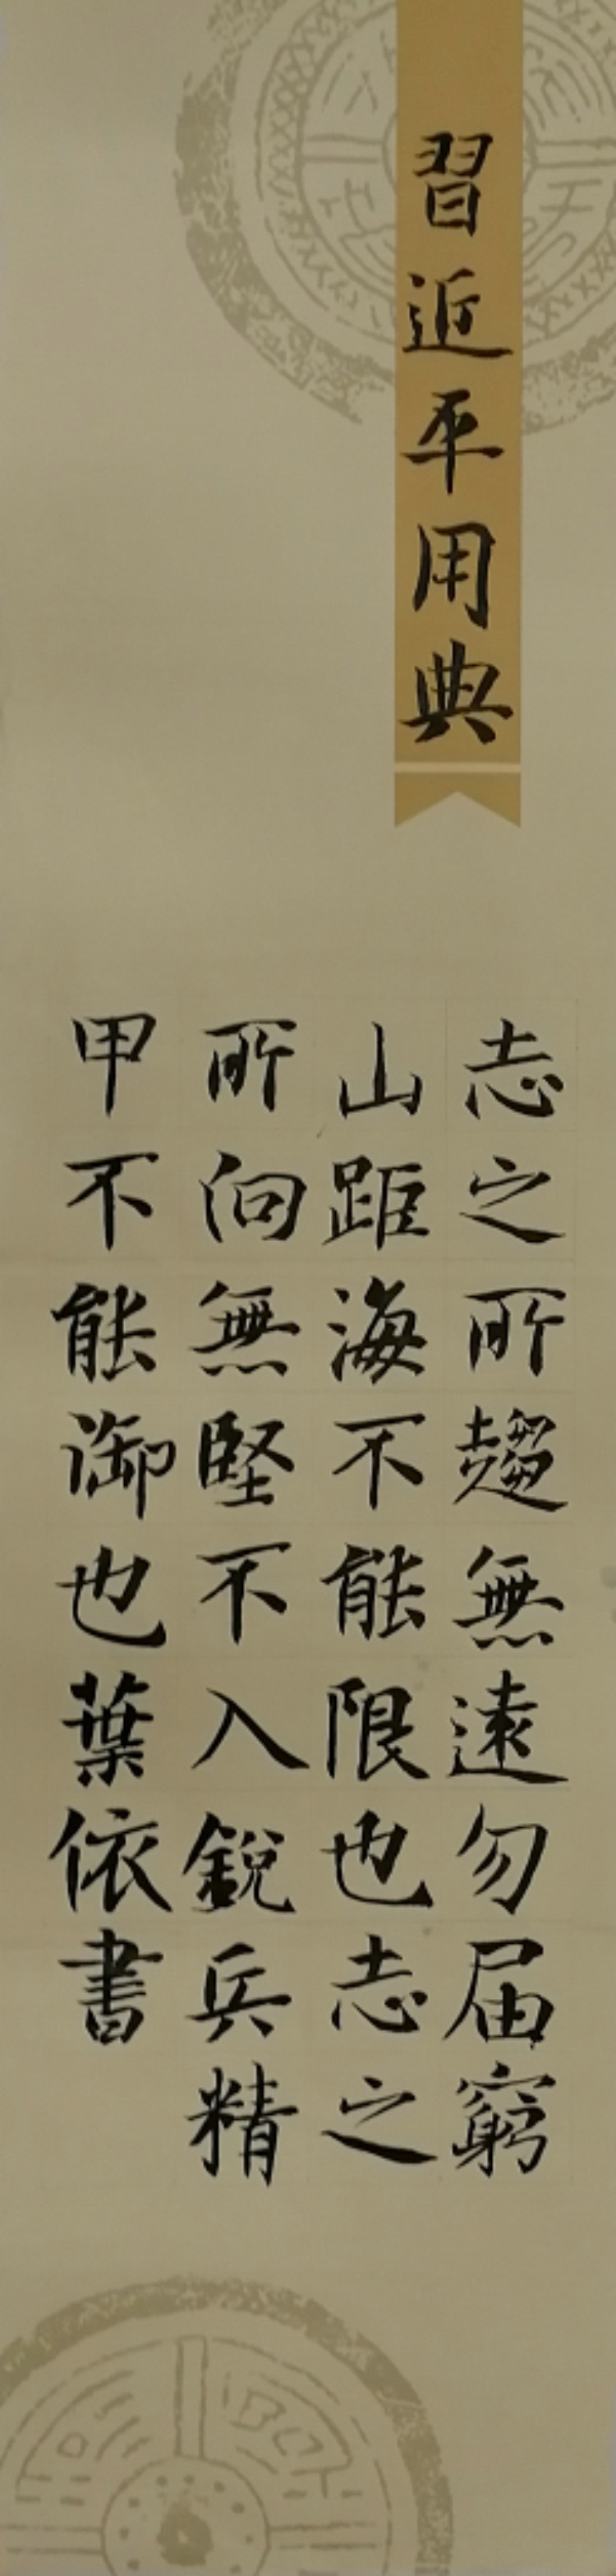 習近平用典
志之所趨無遠勿届窮
山距海不能限也志之
所向無堅不入銳兵精
甲不能御也葉依書